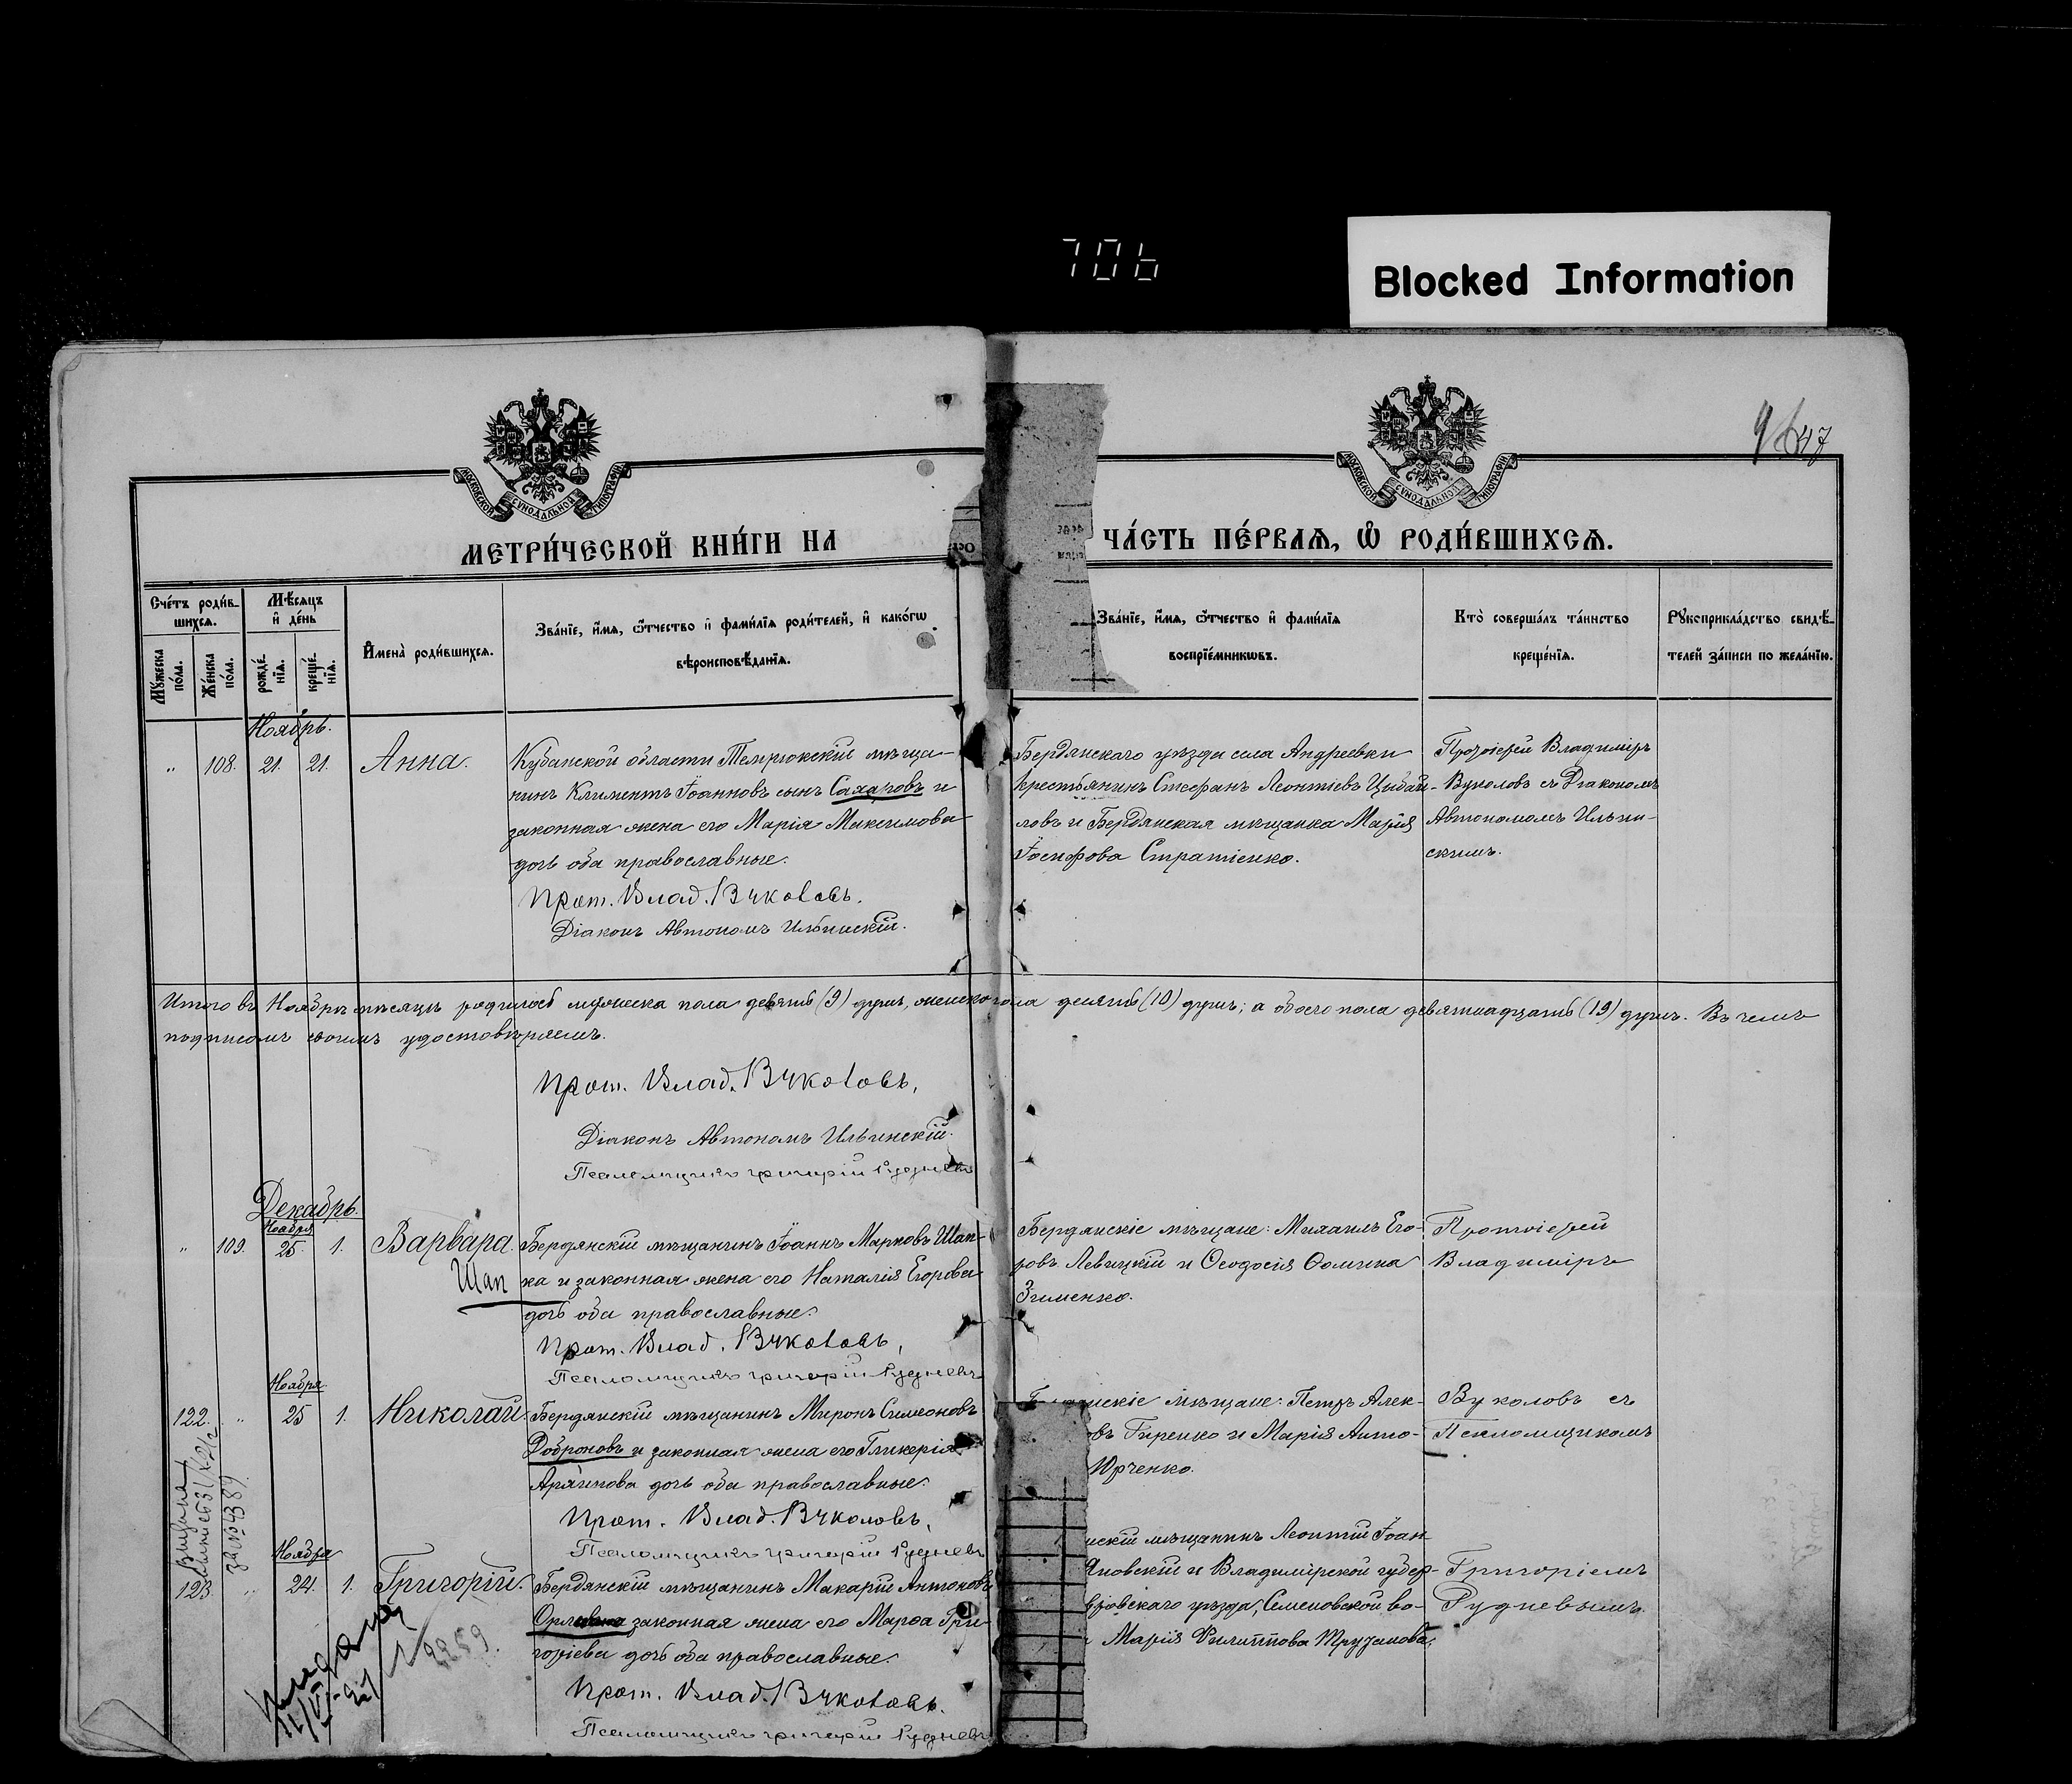 706
Blocked Information
47
МОСКОВСКОЙ СѴНОДАЛЬНОЙ ТИПОГРАФІИ
МОСКОВСКОЙ СѴНОДАЛЬНОЙ ТИПОГРАФІИ
МЕТРИ́ЧЕСКОЙ КНИ́ГИ НА
ЧА́СТЬ ПЕ́РВАѦ, Ѽ РОДИ́ВШИХСѦ.
Сче́тъ роди́в-
шихсѧ.
Мꙋ́жеска по́ла.
Же́нска по́ла.
Мѣ́сѧцъ
и҆ де́нь
рожде́-нїѧ.
креще́-нїѧ.
И҆мена̀ роди́вшихсѧ.
Зва́нїе, и҆́мѧ, ѻ҆́тчество и҆ фами́лїѧ роди́телей, и҆ како́гѡ
вѣроисповѣ́данїѧ.
Зва́нїе, и҆́мѧ, ѻ҆́тчество и҆ фами́лїѧ
воспрїе́мникѡвъ.
Кто̀ соверша́лъ та́инство
креще́нїѧ.
Рꙋкоприкла́дство свидѣ́-
телей за́писи по жела́нїю.
Ноябрь.
„ 108. 21. 21. Анна.
Кубанской области Темрюкскій мѣща-
нинъ Климентъ Іоанновъ сынъ Сахаровъ и
законная жена его Марія Максимова
дочь оба православные.
Прот. Влад. Вуколовъ.
Діаконъ Автономъ Ильинскій.
Бердянскаго уѣзда села Андреевки
крестьянинъ Стефанъ Леонтіевъ Цыбай-
ловъ и Бердянская мѣщанка Марія
Іосифова Стратіенко.
Протоіерей Владиміръ
Вуколовъ съ Діакономъ
Автономомъ Ильин-
скимъ.
Итого въ Ноябрѣ мѣсяцѣ родилось мужеска пола девять (9) душъ, женска пола десять (10) душъ; а обоего пола девятнадцать (19) душъ. Въ чемъ
подписомъ своимъ удостовѣряемъ.
Прот. Влад. Вуколовъ,
Діаконъ Автономъ Ильинскій.
Псаломщикъ Григорій Рудневъ
Декабрь.
Ноября
„ 109. 25. 1. Варвара.
Бердянскій мѣщанинъ Іоаннъ Марковъ Шап-
Шап
ка и законная жена его Наталія Егорова
дочь оба православные.
Прот. Влад. Вуколовъ,
Псаломщикъ Григорій Рудневъ
Бердянскіе мѣщане: Михаилъ Его-
ровъ Левицкій и Ѳеодосія Ѳомина
Зименко.
Протоіерей
Владиміръ
Ноября
122. „ 25 1. Николай.
Бердянскій мѣщанинъ Миронъ Симеоновъ
Доброновъ и законная жена его Гликерія
Архипова дочь оба православные.
Прот. Влад. Вуколовъ,
Псаломщикъ Григорій Рудневъ
мѣщане: Петръ Алек-
овъ Гиренко и Марія Анто-
Юрченко.
Вуколовъ съ
Псаломщикомъ
за № 4389
Ноября
123. „ 24. 1. Григорій.
Бердянскій мѣщанинъ Макарій Антоновъ
законная жена его Марѳа Гри-
горіева дочь оба православные.
Прот. Влад. Вуколовъ.
Псаломщикъ Григорій Рудневъ
нскій мѣщанинъ Леонтій Іоан-
яновскій и Владимірской губер-
ровскаго уѣзда, Семеновской во-
Марія Филиппова Труханова.
Григоріемъ
Рудневымъ.